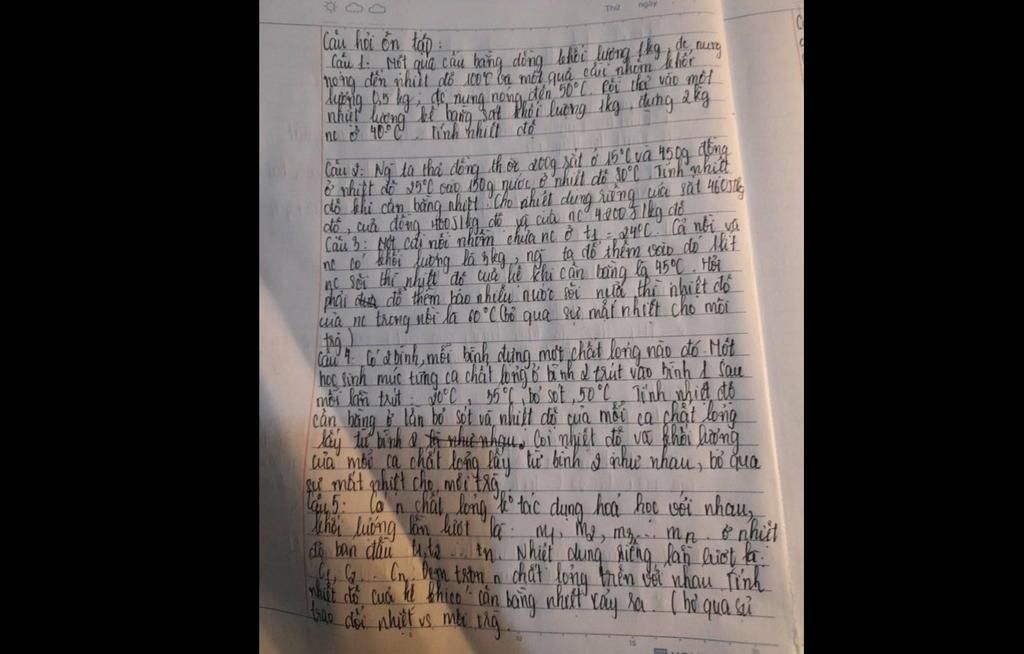 Thứ ngày
Câu hỏi ôn tập:
Câu 1: Một quả cầu bằng đồng khối lượng 1kg, đc nung
nóng đến nhiệt độ 100°C và một quả cầu nhôm khối
lượng 0,5 kg; đc nung nóng đến 50°C. Rồi thả vào một
nhiệt lượng kế bằng sắt khối lượng 1kg, đựng 2kg
nc ở 40°C. Tính nhiệt độ
Câu 2: Ng ta thả đồng thời 200g sắt ở 15°C và 450g đồng
ở nhiệt độ 25°C vào 150g nước ở nhiệt độ 80°C. Tính nhiệt
độ khi cân bằng nhiệt. Cho nhiệt dung riêng của sắt 460J/kg
độ, của đồng 400J/kg độ và của nc 4200J/kg độ
Câu 3: Một cái nồi nhôm chứa nc ở t1 = 24°C. Cả nồi và
nc có khối lượng là 3kg, ng ta đổ thêm vào đó 1lít
nc sôi thì nhiệt độ của hệ khi cân bằng là 45°C. Hỏi
phải đổ thêm bao nhiêu nước sôi nữa thì nhiệt độ
của nc trong nồi là 60°C (bỏ qua sự mất nhiệt cho môi
trg)
Câu 4: Có 2 bình, mỗi bình đựng một chất lỏng nào đó. Một
học sinh múc từng ca chất lỏng ở bình 2 trút vào bình 1 sau
mỗi lần trút: 20°C, 35°C, bỏ sót, 50°C. Tính nhiệt độ
cân bằng ở lần bỏ sót và nhiệt độ của mỗi ca chất lỏng
lấy từ bình 2 là như nhau. Coi nhiệt độ và khối lượng
của mỗi ca chất lỏng lấy từ bình 2 như nhau, bỏ qua
sự mất nhiệt cho môi trg
Câu 5: Có n chất lỏng ko tác dụng hoá học với nhau,
khối lượng lần lượt là: m1, m2, m3... mn. ở nhiệt
độ ban đầu t1, t2 ... tn. Nhiệt dung riêng lần lượt là:
C1, C2 ... Cn. Đem trộn n chất lỏng trên với nhau Tính
nhiệt độ của hệ khi có cân bằng nhiệt xảy ra. (bỏ qua sự
trao đổi nhiệt vs môi trg.